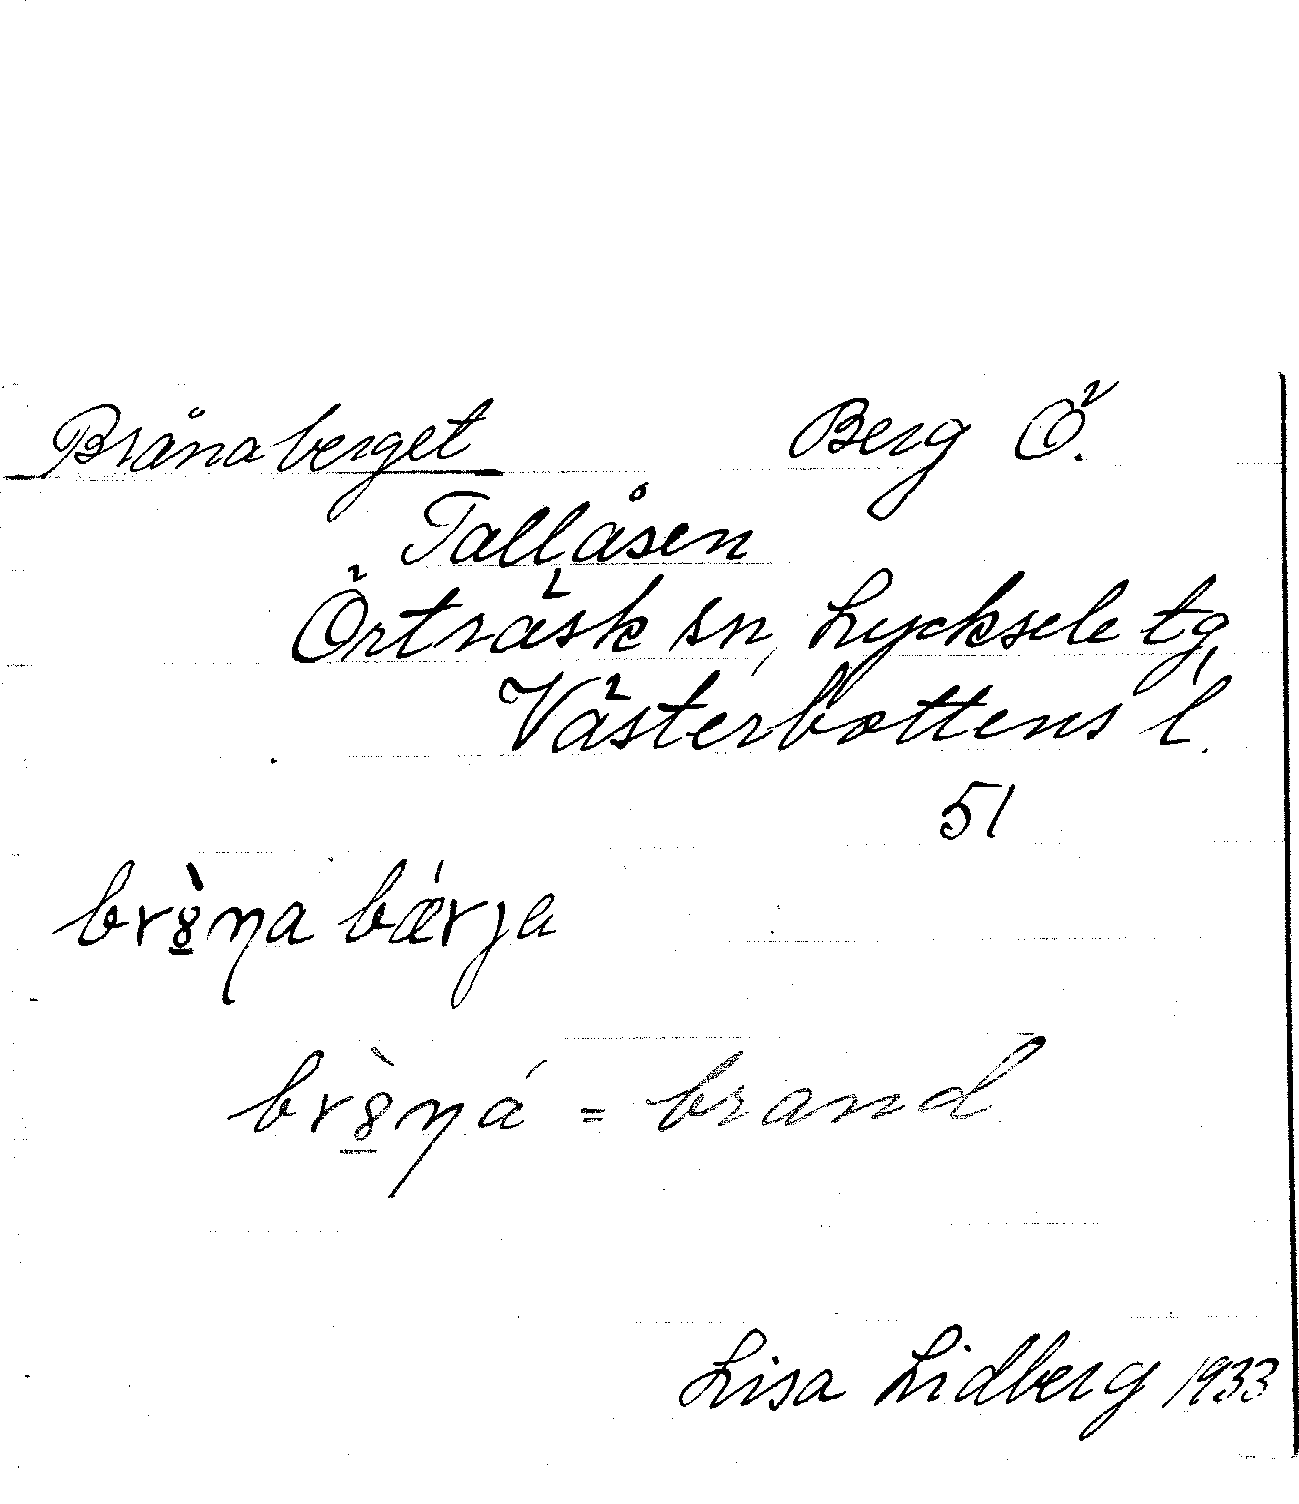 Brånaberget Berg Ö.
Tallåsen
Örträsk sn, Lycksele tg,
Västerbottens l.
51
br8̲̀ŋa bǽrja
br8̲̀ŋá = brand
Lisa Lidberg 1933